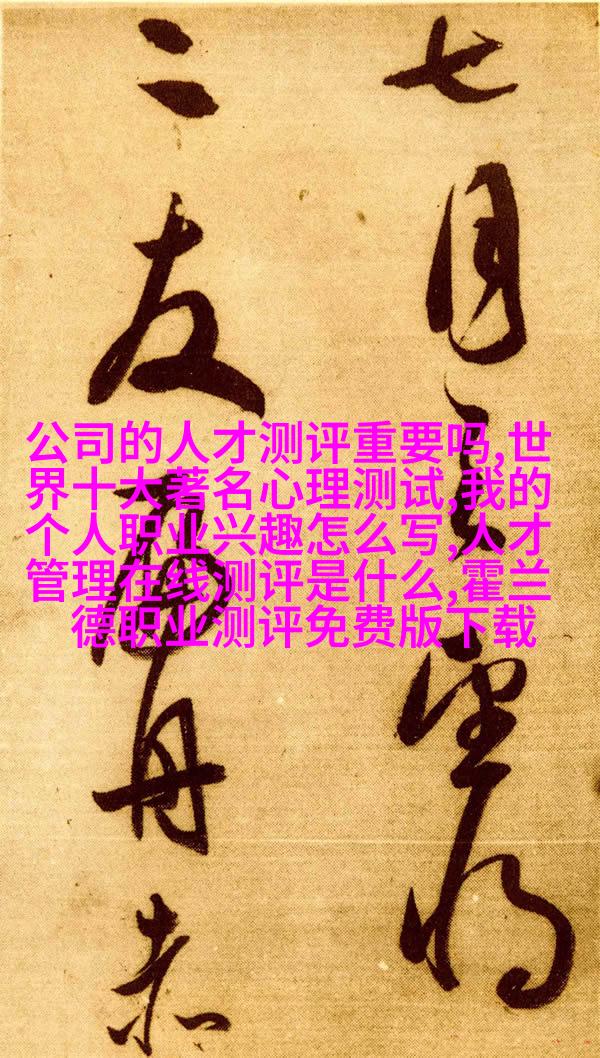 七月望将
二友舟赤
公司的人才测评重要吗,世
界十大著名心理测试,我的
个人职业兴趣怎么写,人才
管理在线测评是什么,霍兰
德职业测评免费版下载